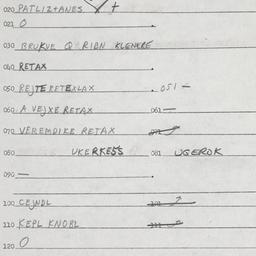 020 PATLIZTANES
021 O
030 BRUKVE Q RIBN KLENERE
040 RETAX
050 REJTE RETEXLAX 051 —
060 A VEJXE RETAX 061 —
070 VEREMDIKE RETAX 071
080 UKERKES5 081 UGEROK
090 —
100 CEJNDL 101
110 KEPL KNOBL 111
120 O